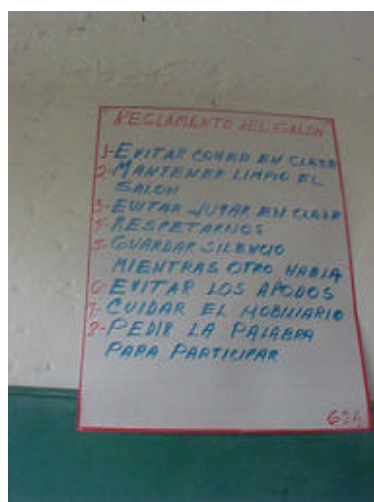 REGLAMENTO DEL SALON
1-EVITAR COMER EN CLASE
2-MANTENER LIMPIO EL
SALON
3-EVITAR JUGAR EN CLASE
4-RESPETARNOS
5-GUARDAR SILENCIO
MIENTRAS OTRO HABLA
6-EVITAR LOS APODOS
7-CUIDAR EL MOBILIARIO
8-PEDIR LA PALABRA
PARA PARTICIPAR